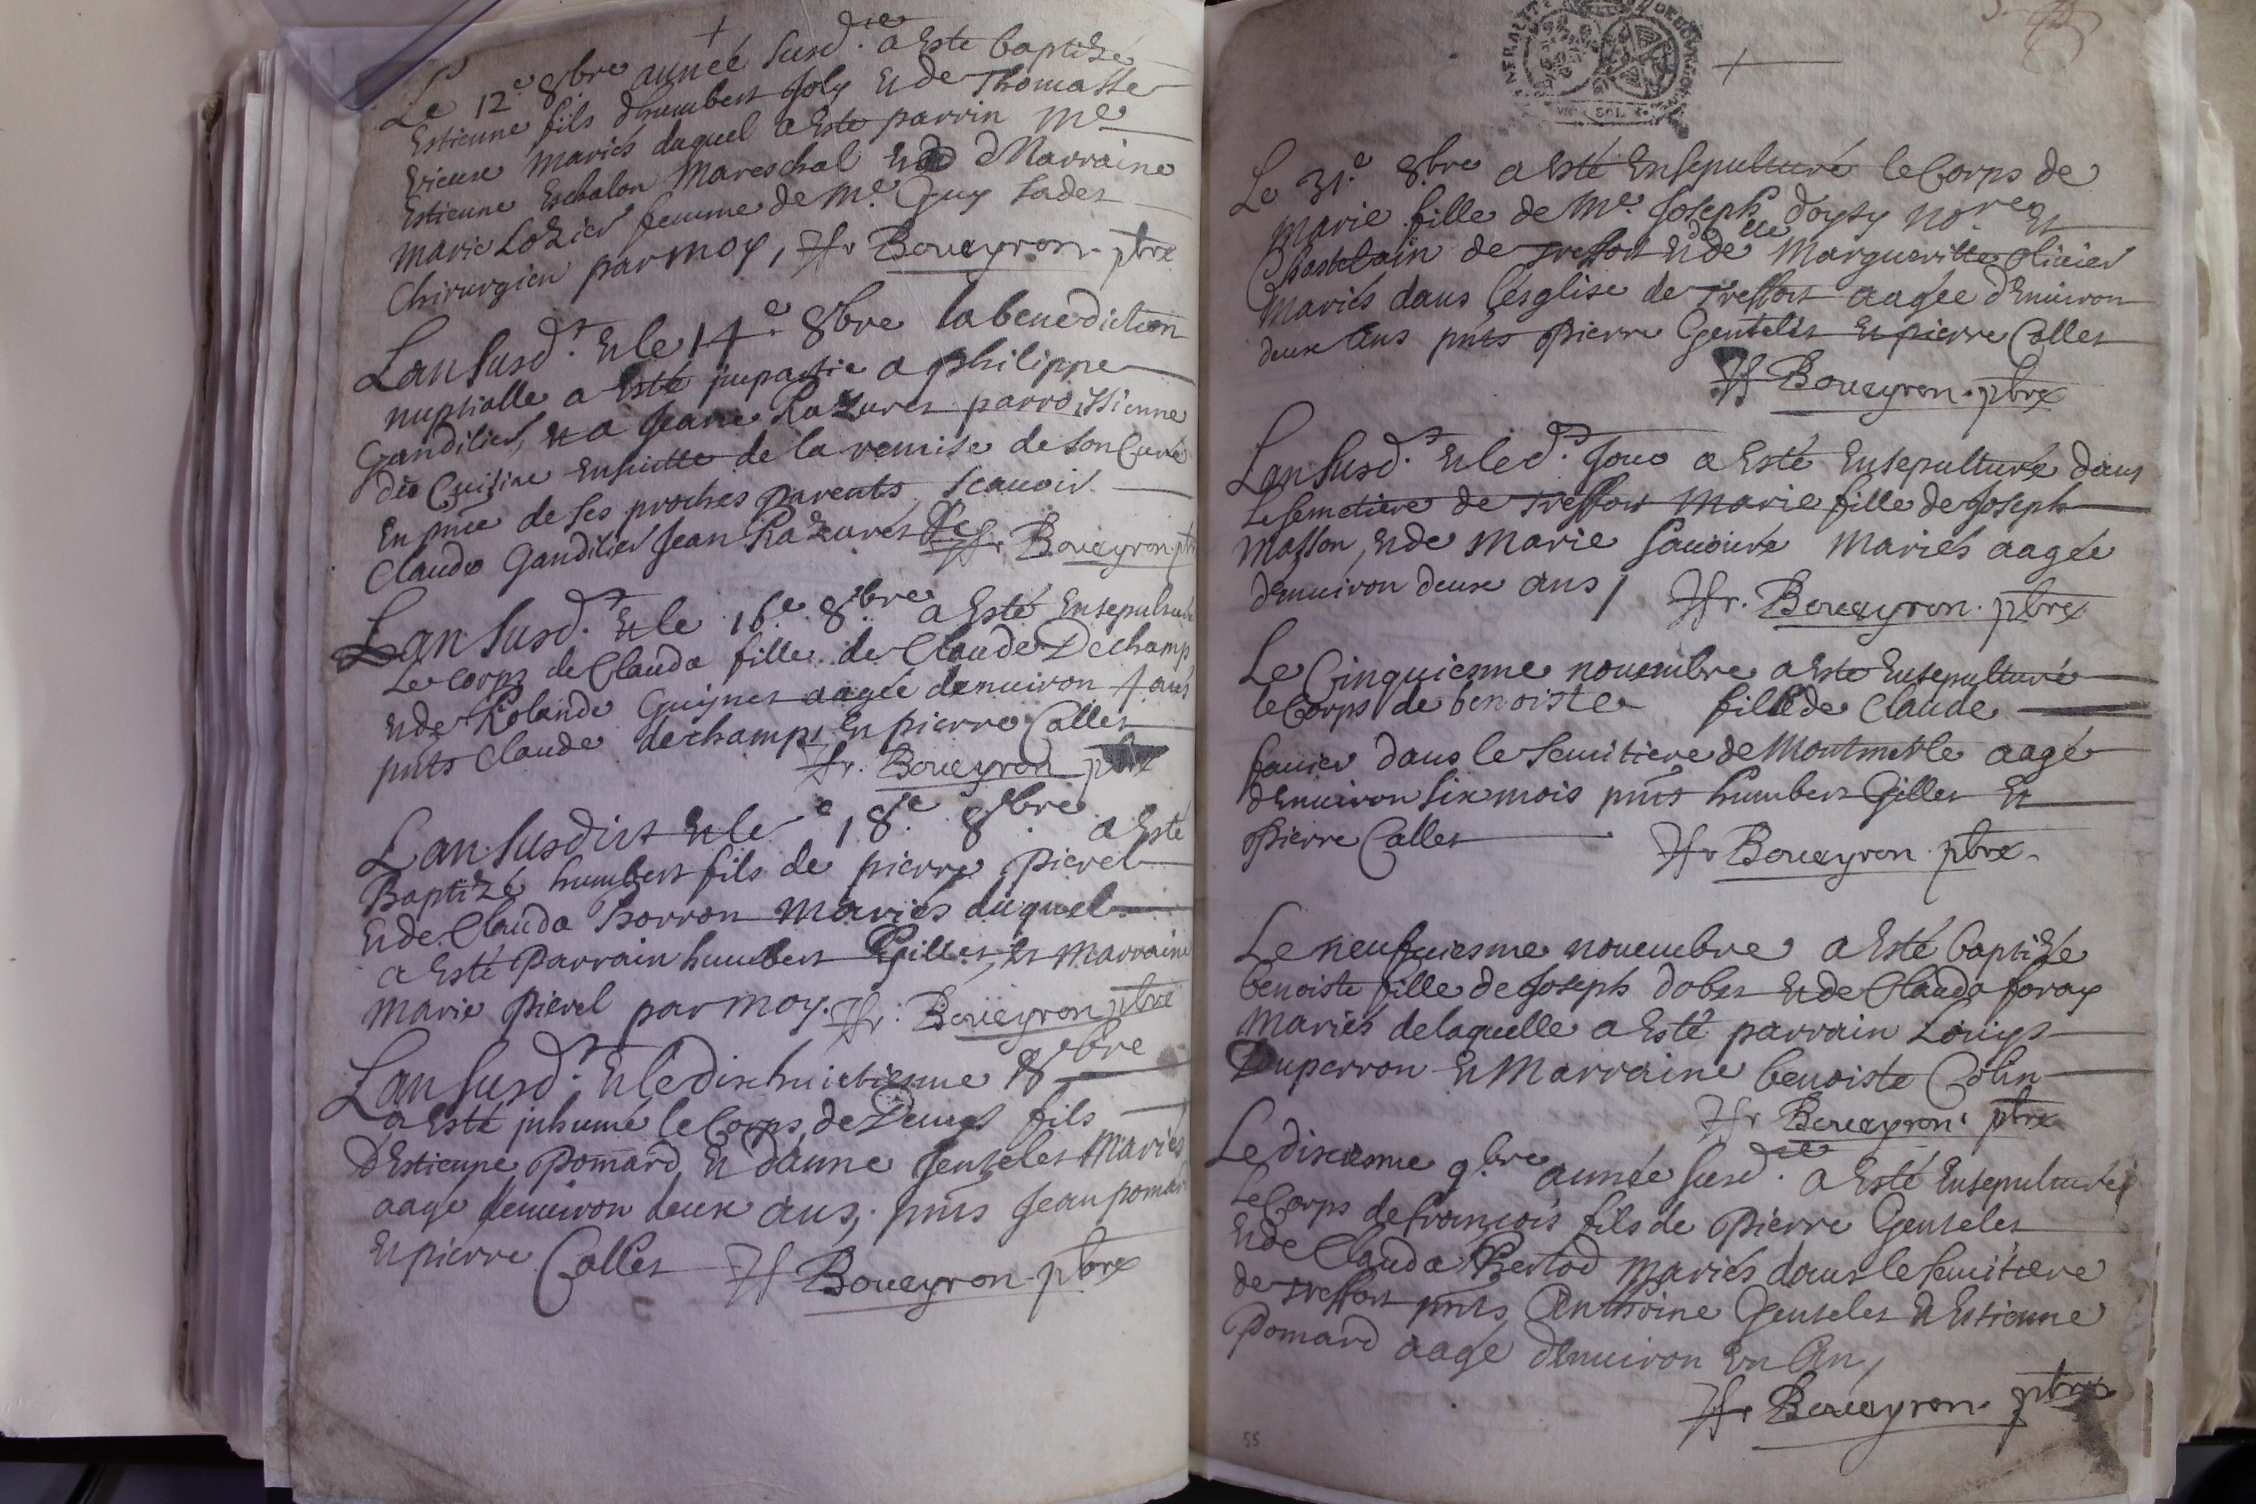 Le 12e 8bre année susd.ie a este baptizé
Estienne fils d'humbert Joly et de Thomasse
Vieux mariés duquel a este parrin me
Estienne Eschalon Mareschal et Marraine
Marie Lozier femme de Me. Guy Sader
Chirurgien par moy, Boueyron. pbre
Lan susd.t et le 14e 8bre la benediction
nuptialle a esté jmpartie a philippe
Gandilier, et a Jeane Razurel parroissienne
de Cuisiae ensuitte de la remise de son Curé
En pnce de ses proches parents, scauoir
Claude Gandilier Jean Razurel Boueyron pbre
Lan susd.t et le 16.e 8bre a esté ensepulturé
Le corps de Clauda fille de Claude Dechamp
et de Rolande Guignet aagée denuiron 4 ans
pnts Claude dechamps et pierre Caller
Boueyron pbre
Lan susdict et le 18.e 8bre a esté
Baptizé humbert fils de pierre Pierel
et de Clauda Borron mariés duquel
a esté Parrain humbert Giller, et marraine
Marie Pierel par moy. Boueyron pbre
Lan susd.t et le dixhuictiesme 8bre
a esté jnhumé le Corps de Denys fils
D'Estienne Pomard et d'anne Genteler mariés
aagé denuiron deux ans, pnts Jean pomar
Et pierre Caller Boueyron. pbre
Le 31.e 8.bre a esté Ensepulturé le Corps de
Marie fille de Me. Joseph doysy no.re et
Chastelain de Treffort et de d.lle Margueritte Oliuier
Mariés dans l'esglise de Treffort aagée d'Enuiron
deux Ens pnts Pierre Genteler et pierre Caller
Boueyron. pbre
Lan susd.t et led.t Jour a esté Ensepulturé dans
Le semetiere de Treffort Marie fille de Joseph
Masson, et de Marie Sauoiure Mariés aagée
denuiron deux ans / Boueyron. pbre
Le Cinquiesme nouembre a este Ensepulturé
le Corps de benoiste fille de Claude
fauier dans le Semitiere de Montmerle aagé
d'Enuiron Six mois pnts humbert Giller Et
Pierre Caller Boueyron. pbre
Le neufuiesme nouembre a esté baptizée
benoiste fille de Joseph dober et de Clauda foray
Mariés de laquelle a esté parrain Louys
Duperron et Marraine benoiste Colin
Boueyron. pbre
Le dixiesme 9.bre année susd.ie a esté Ensepulturé
Le Corps de francois fils de Pierre Genteler
et de Clauda Bertod mariés dans le semitiere
de Treffort pnts Anthoine Genteler et Estienne
Pomard aagé denuiron un An,
Boueyron. pbre
55